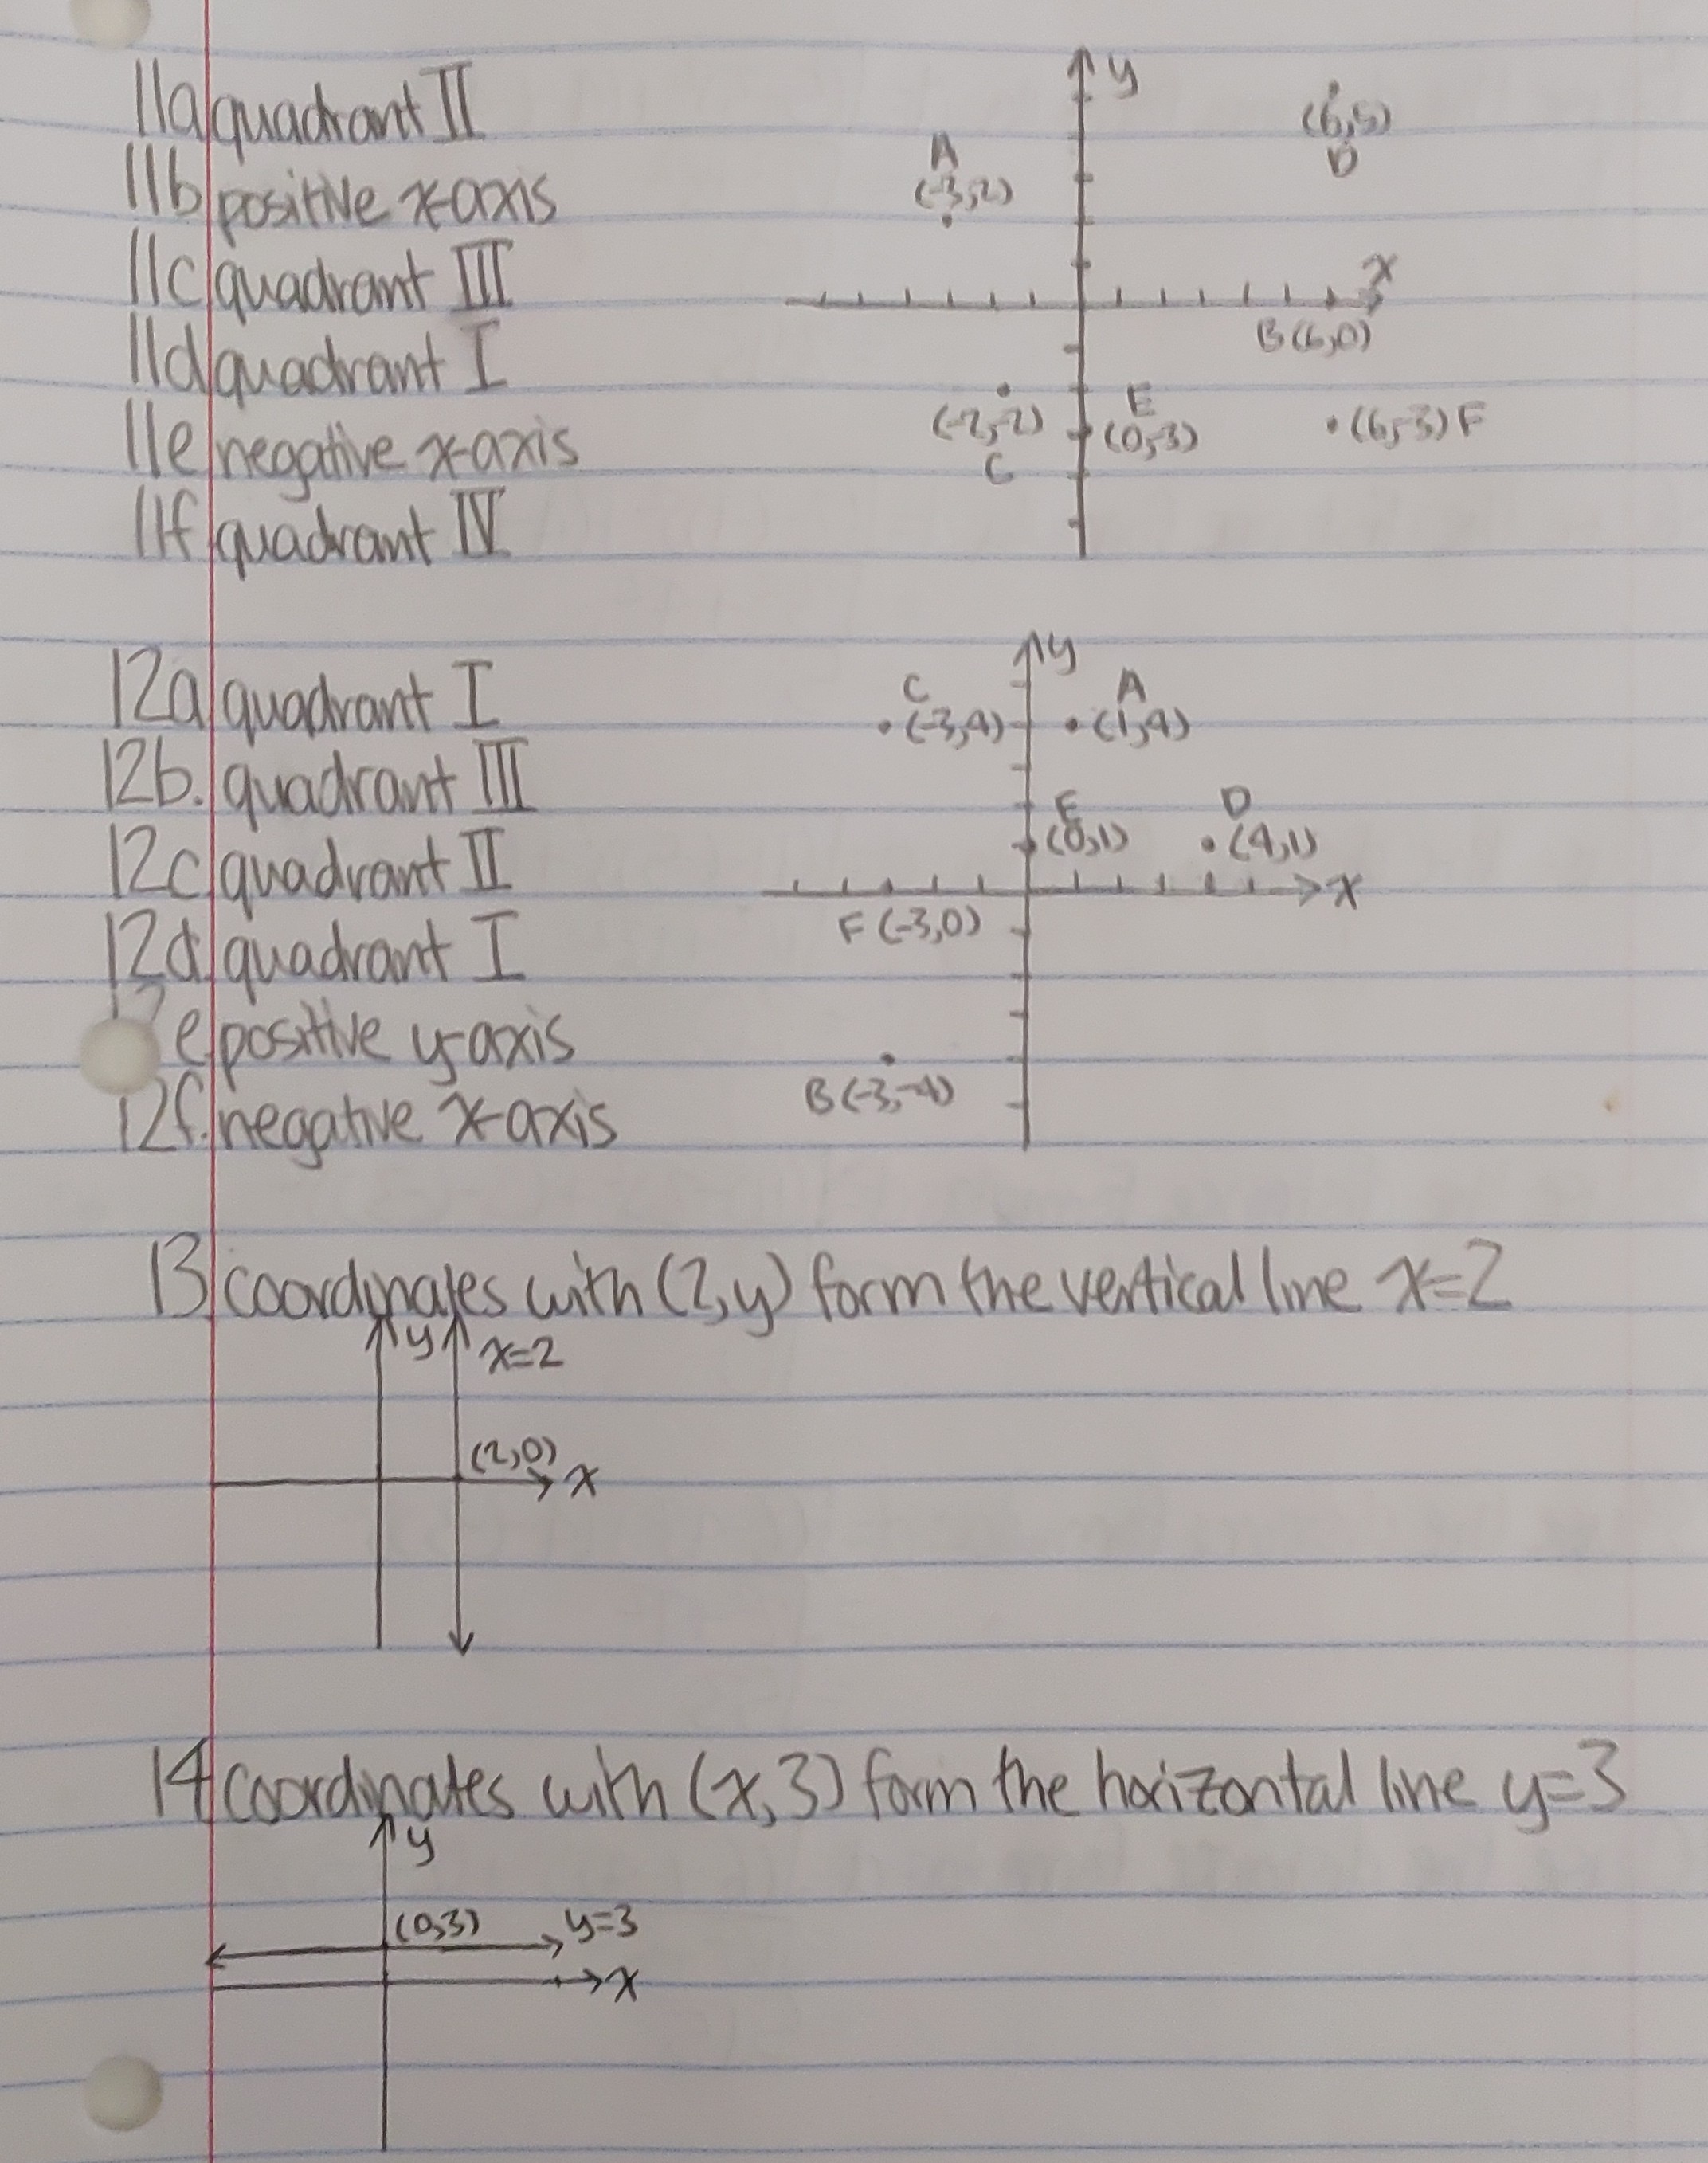 11a quadrant II
11b positive x-axis
11c quadrant III
11d quadrant I
11e negative x-axis
11f quadrant IV
y
(6,5)
D
A
(-3,2)
x
B(6,0)
(-2,-2)
C
E
(0,-3)
(6,-3) F
12a quadrant I
12b. quadrant III
12c quadrant II
12d. quadrant I
12e positive y-axis
12f. negative x-axis
y
C
(-3,4)
A
(1,4)
E
(0,1)
D
(4,1)
x
F (-3,0)
B (-3,-4)
13 coordinates with (2,y) form the vertical line x=2
y
x=2
(2,0)
x
14 coordinates with (x,3) form the horizontal line y=3
y
(0,3)
y=3
x